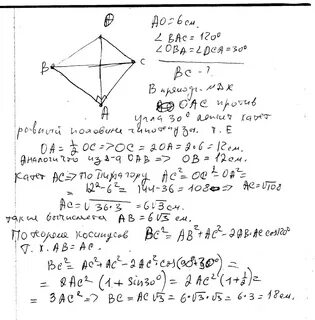 D
AO = 6 см.
∠BAC = 120°
∠OBA = ∠OCA = 30°
B
C
BC - ?
A
В прямоуг. ΔAX
OAC против
угла 30° лежит катет
равный половине гипотенузы. Т. Е
OA = 1/2 OC => OC = 2OA = 2·6 = 12 см.
Аналогично из Δ-а OAB => OB = 12 см.
Катет AC => По Пифагору AC² = OC² - OA² =
= 12² - 6² = 144 - 36 = 108 => AC = √108
AC = √36·3 = 6√3 см.
также вычисляется AB = 6√3 см.
По теореме косинусов BC² = AB² + AC² - 2AB·AC cos120°
Т. К. AB = AC.
BC² = AC² + AC² - 2AC² cos(90°+30°) =
= 2AC² (1 + Sin30°) = 2AC² (1 + 1/2) =
= 3AC² => BC = AC√3 = 6·√3·√3 = 6·3 = 18 см.